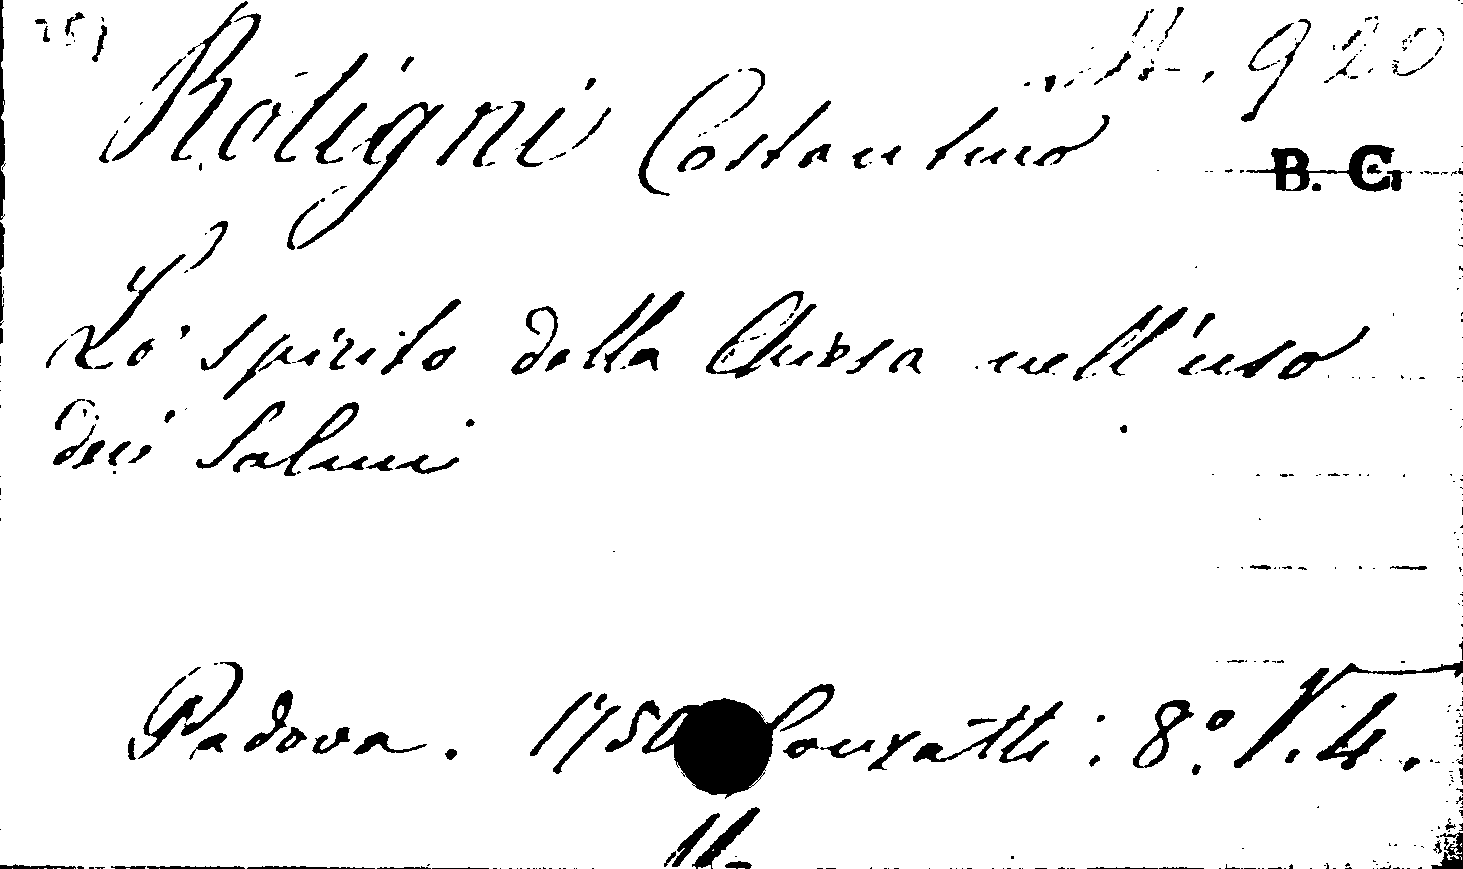 M. 920
Rotigni Costantino
B. C.
Lo spirito della Chiesa nell'uso
dei Salmi
Padova. 1750 Conzatti. 8.° V. 4.